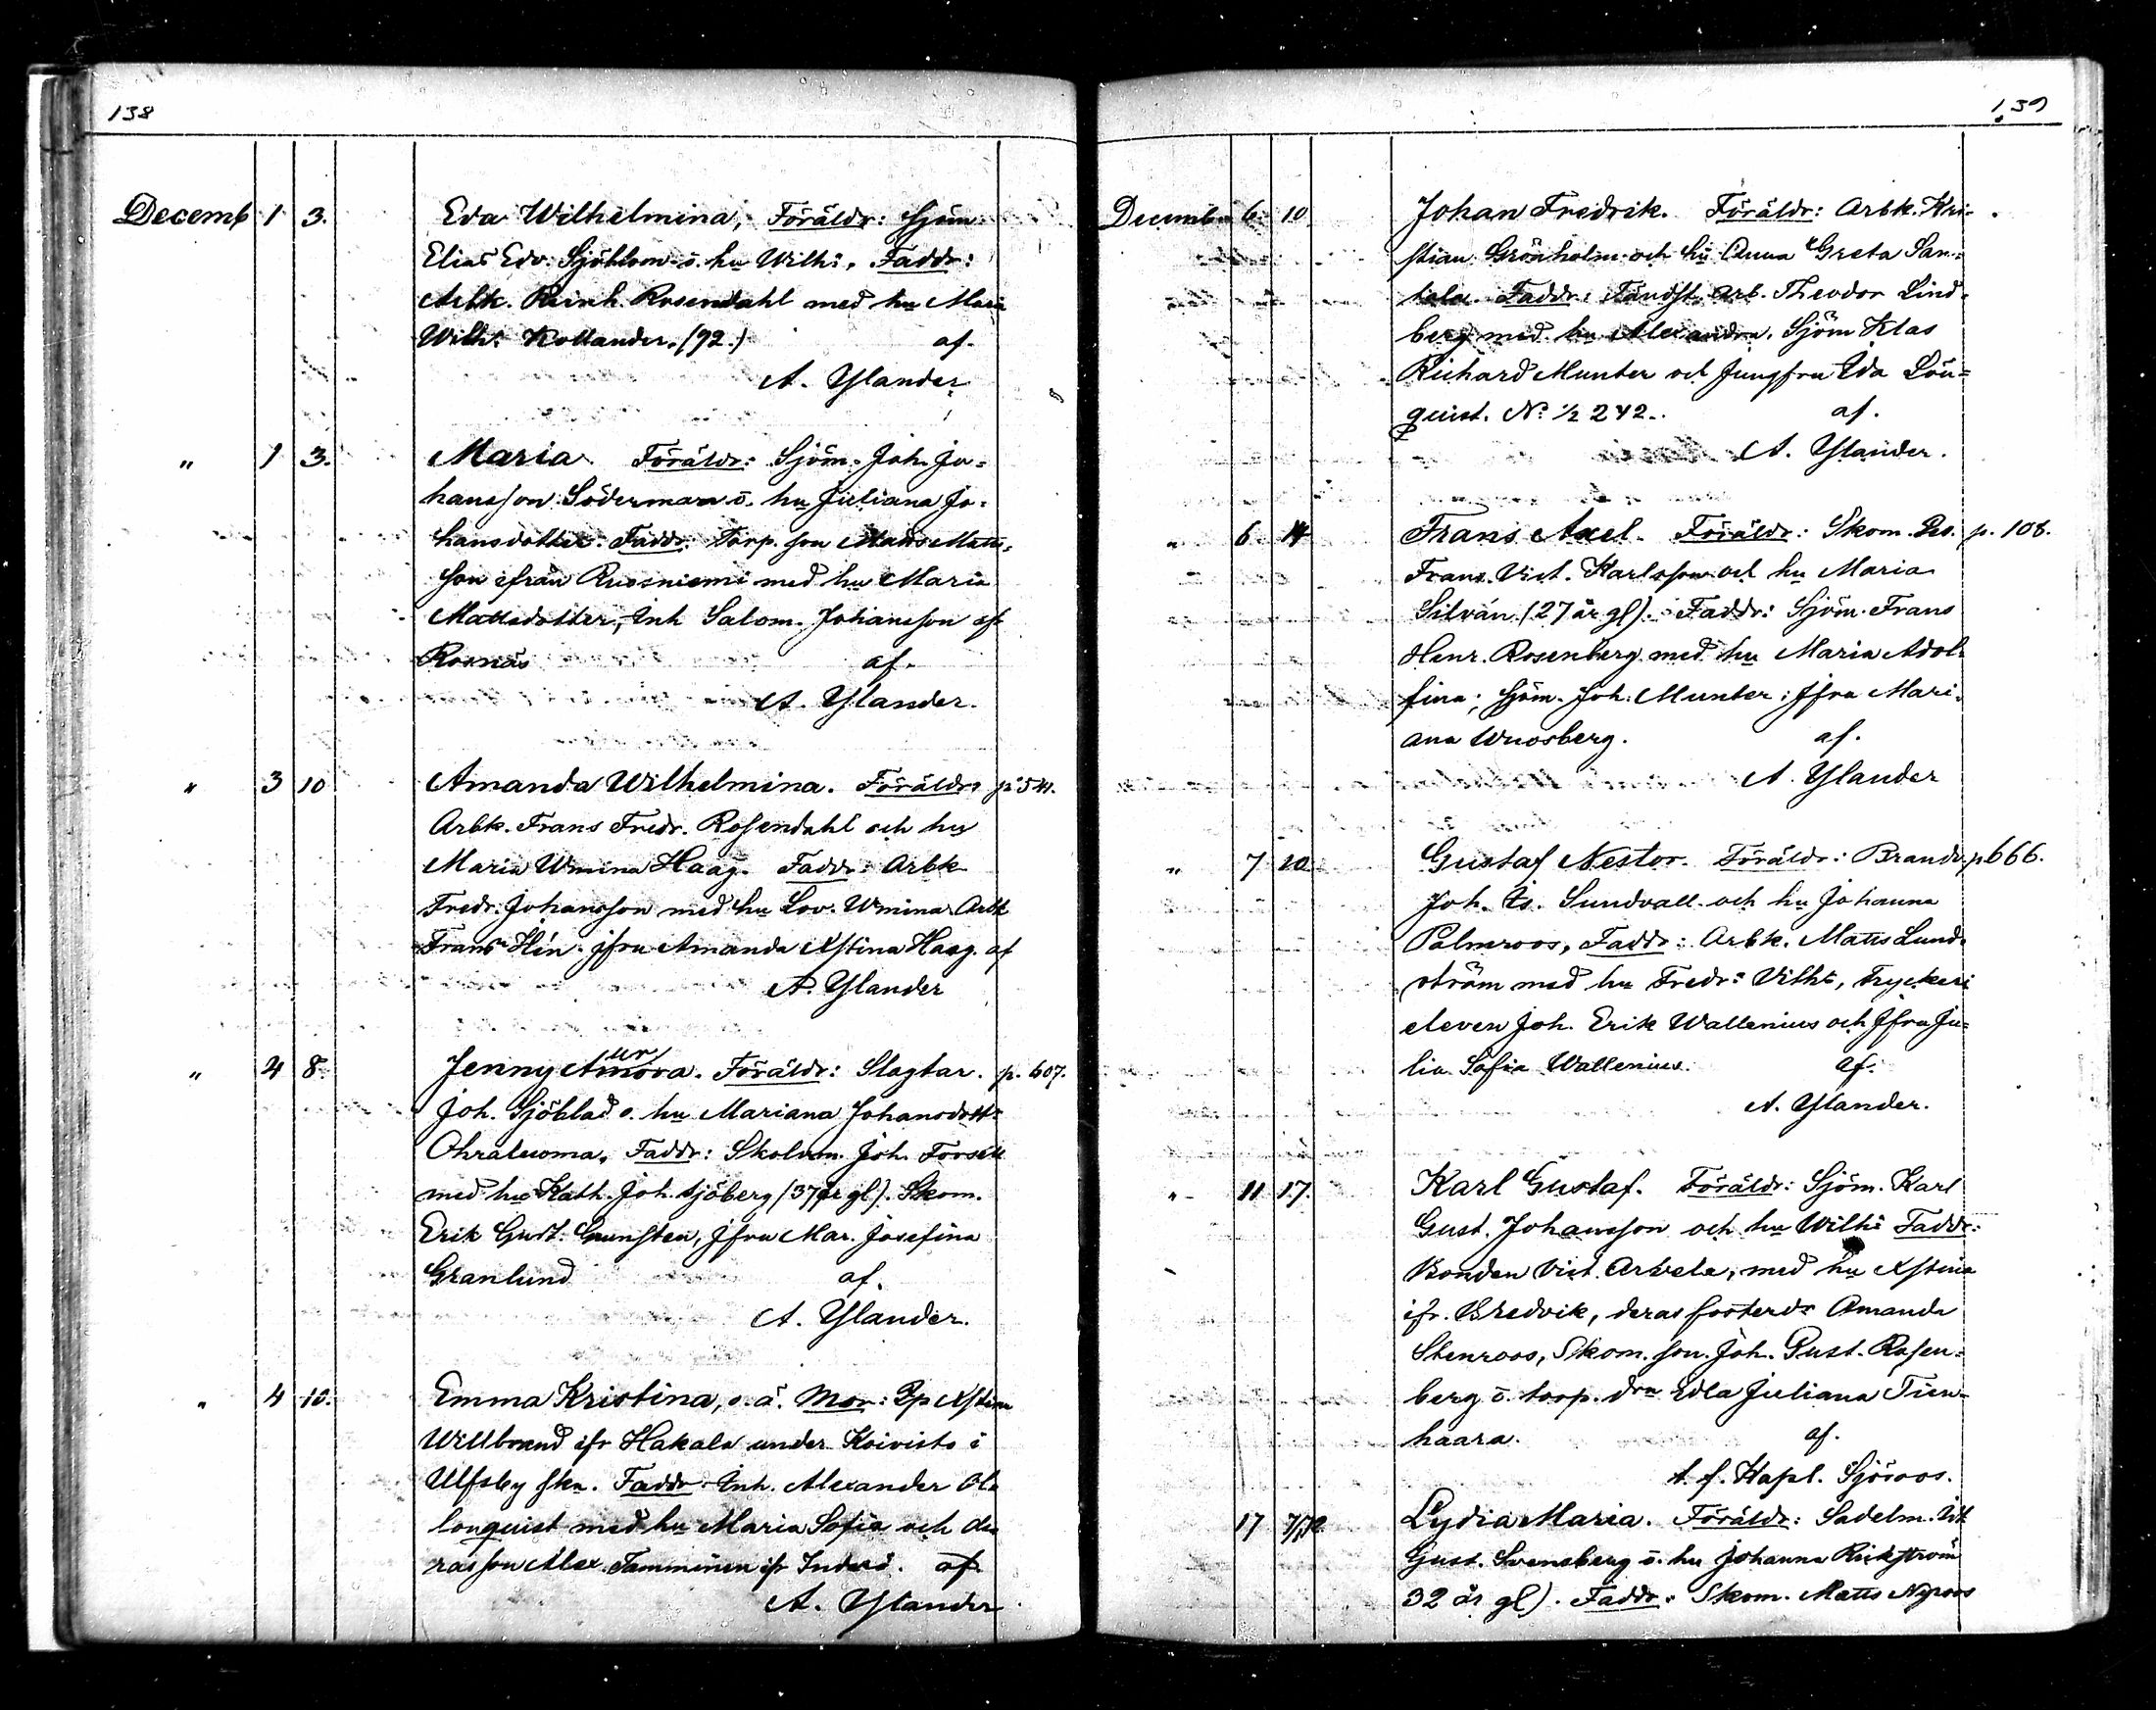 138
Decemb 1 3. Eva Wilhelmina, Föräldr: Sjöm
Elias Edv. Sjöblom o. hu Wilh:, Faddr:
Arbk. Reinh. Rosendahl med hu Maria
Wilh: Kollander. (92.) af.
A. Ylander
" 1 3. Maria Föräldr: Sjöm. Joh. Jo-
hansson Söderman o. hu Juliana Jo-
hansdotter. Faddr. Torp. son Matts Matts-
son ifrån Ruosniemi med hu Maria
Mattsdotter, Inh Salom. Johansson ifr
Rosnäs af.
A. Ylander.
" 3 10 Amanda Wilhelmina. Föräldr: p 541.
Arbk. Frans Fredr. Rosendahl och hu
Maria Wmina Haag. Faddr: Arbk
Fredr. Johansson med hu Lov. Wmina Arbk
Frans Hén. jfru Amanda Xstina Haag. af
A. Ylander
ur
" 4 8. Jenny Amora. Föräldr: Slagtar. p. 607.
Joh. Sjöblad o. hu Mariana Johansdott:
Ohraluoma, Faddr: Skolvm. Joh. Forsell
med hu Kath. Joh. Sjöberg (37 år gl). Skom.
Erik Gust: Grunsten, Jfru Mar. Josefina
Granlund af.
A. Ylander.
" 4 10. Emma Kristina, o. ä. Mor: Pp Xstina
Willbrand ifr Hakala under Koivisto i
Ulfsby skn. Faddr Inh. Alexander Ol-
lonquist med hu Maria Sofia och de-
ras son Alex. Tamminen ifr Inderö. af
A. Ylander
139
December 6 10 Johan Fredrik. Föräldr: Arbk. Kri-
stian Grönholm och hu Anna Greta San-
tala. Faddr: Tändst. Arb. Theodor Lind-
berg med hu Alexandra, Sjöm Klas
Richard Munter och Jungfru Ida Lön-
quist. N:o ½ 242. af.
A. Ylander.
" 6 14 Frans Axel. Föräldr: Skom. Ges. p. 108.
Frans. Vict. Karlsson och hu Maria
Silván (27 år gl). Faddr: Sjöm. Frans
Henr. Rosenberg med hu Maria Adol-
fina; Sjöm. Joh. Munter; jfru Mari-
ana Wuosberg. af.
A. Ylander
" 7 10 Gustaf Nestor. Föräldr: Brandv. p 666.
Joh. Is. Sundvall och hu Johanna
Palmroos, Faddr: Arbk. Matts Lund-
ström med hu Fredr: Vilh:, Tryckeri
eleven Joh. Erik Wallenius och Jfru Ju-
lia Sofia Wallenius. af.
A. Ylander.
" 11 17. Karl Gustaf. Föräldr: Sjöm. Karl
Gust. Johansson och hu Wilh: Faddr:
Bonden Vict. Arvela, med hu Xstina
ifr. Bredvik, deras fosterdr Amanda
Stenroos, Skom. son. Joh. Gust. Rosen-
berg o. torp. dra Edla Juliana Tien-
haara. af.
t. f. Kapl. Sjöroos.
17 7/1 72 Lydia Maria. Föräldr: Sadelm. Vict
Gust. Svensberg o. hu Johanna Rickström
32 år gl). Faddr: Skom. Matts Nyroos